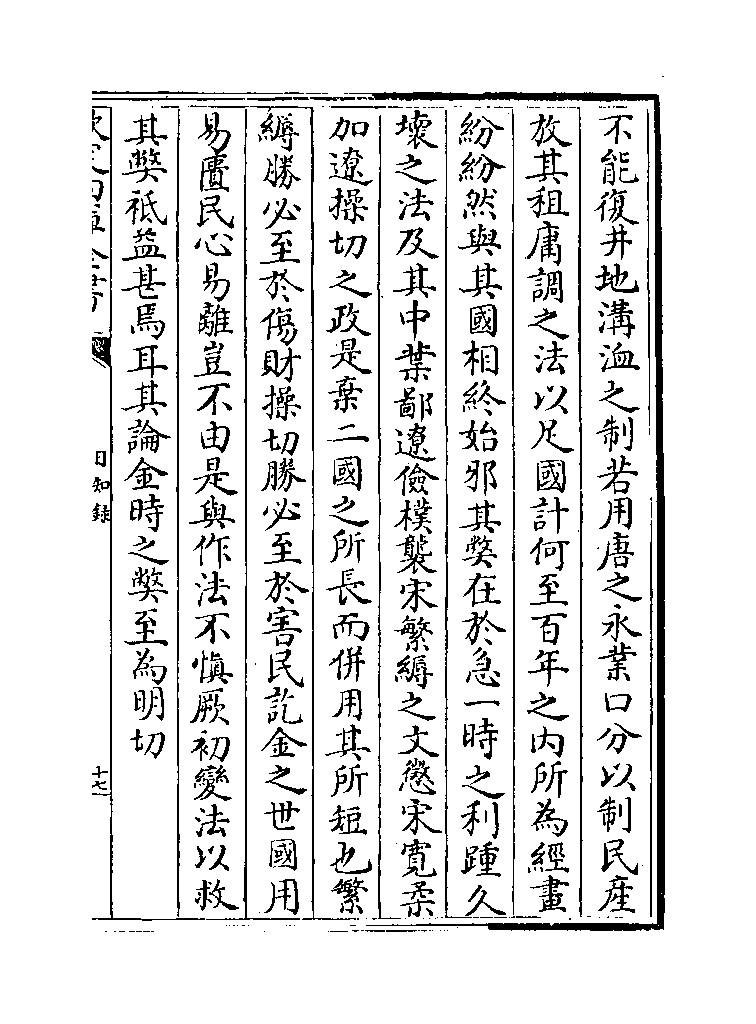 不能復井地溝洫之制若用唐之永業口分以制民產
放其租庸調之法以足國計何至百年之内所為經畫
紛紛然與其國相終始邪其弊在於急一時之利踵久
壞之法及其中葉鄙遼儉樸襲宋繁縟之文懲宋寛柔
加遼操切之政是棄二國之所長而併用其所短也繁
縟勝必至於傷財操切勝必至於害民訖金之世國用
易匱民心易離豈不由是與作法不慎厥初變法以救
其弊祗益甚焉耳其論金時之弊至為明切
日知録
十七